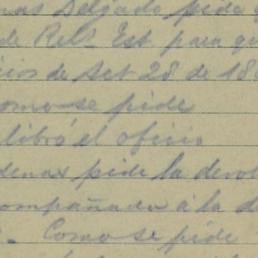 nas Delgado pide q
de Rels Est. para qu
icios de Set 28 de 18
Como se pide
libró el oficio
denas pide la devol
ompañada á la d
. Como se pide